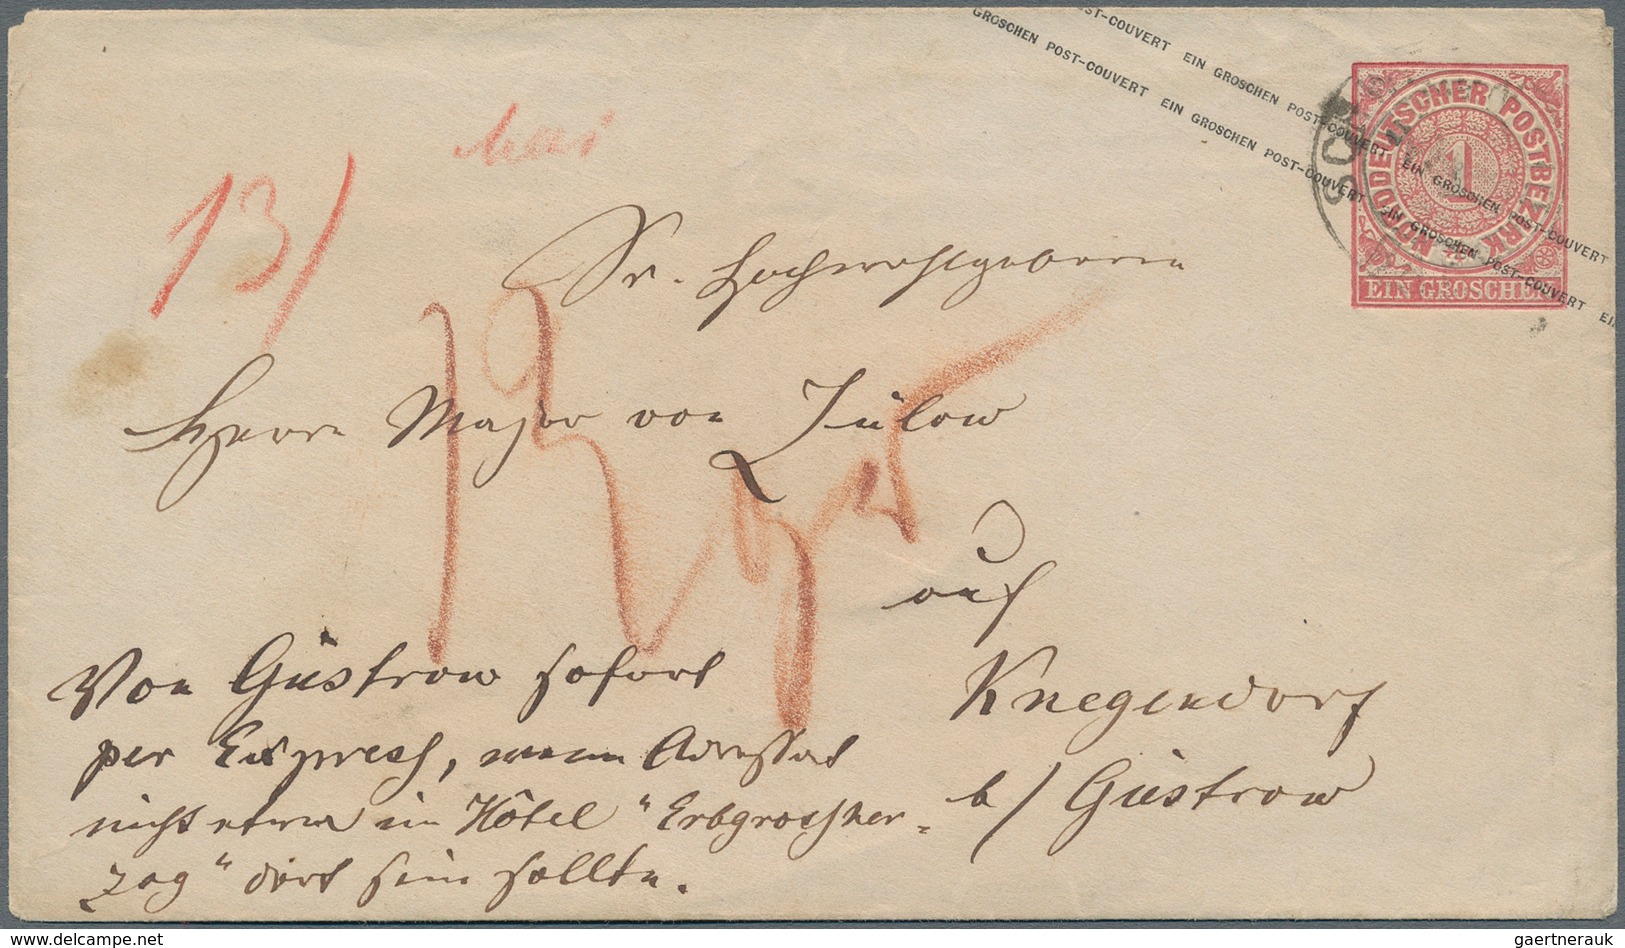 GROSCHEN POST-COUVERT EIN GROSCHEN POST-COUVERT EIN GROSCHEN POST-COUVERT EIN
OST-COUVERT EIN GROSCHEN POST-COUVERT EIN GROSCHEN POST-COUVERT
NORDDEUTSCHER POSTBEZIRK
1
EIN GROSCHEN
13/
Sr. Hochwohlgeboren
Herrn Major von Zülow
auf
Knegendorf
b/ Güstrow
Von Güstrow sofort
per Express, wenn Adressat
nicht etwa im Hôtel "Erbgrossher-
zog" dort sein sollte.
delcampe.net
gaertnerauk